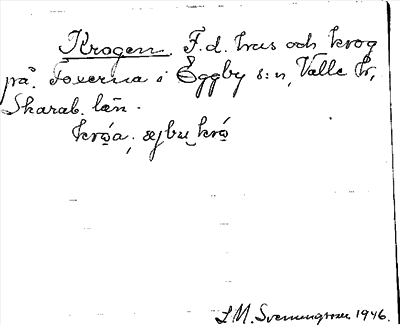 Krogen F.d. hus och krog
på Foxerna i Eggby s:n, Valle hr,
Skarab. län.
kró̜a; æjbu kró̜
S.M. Svenungsson 1946.